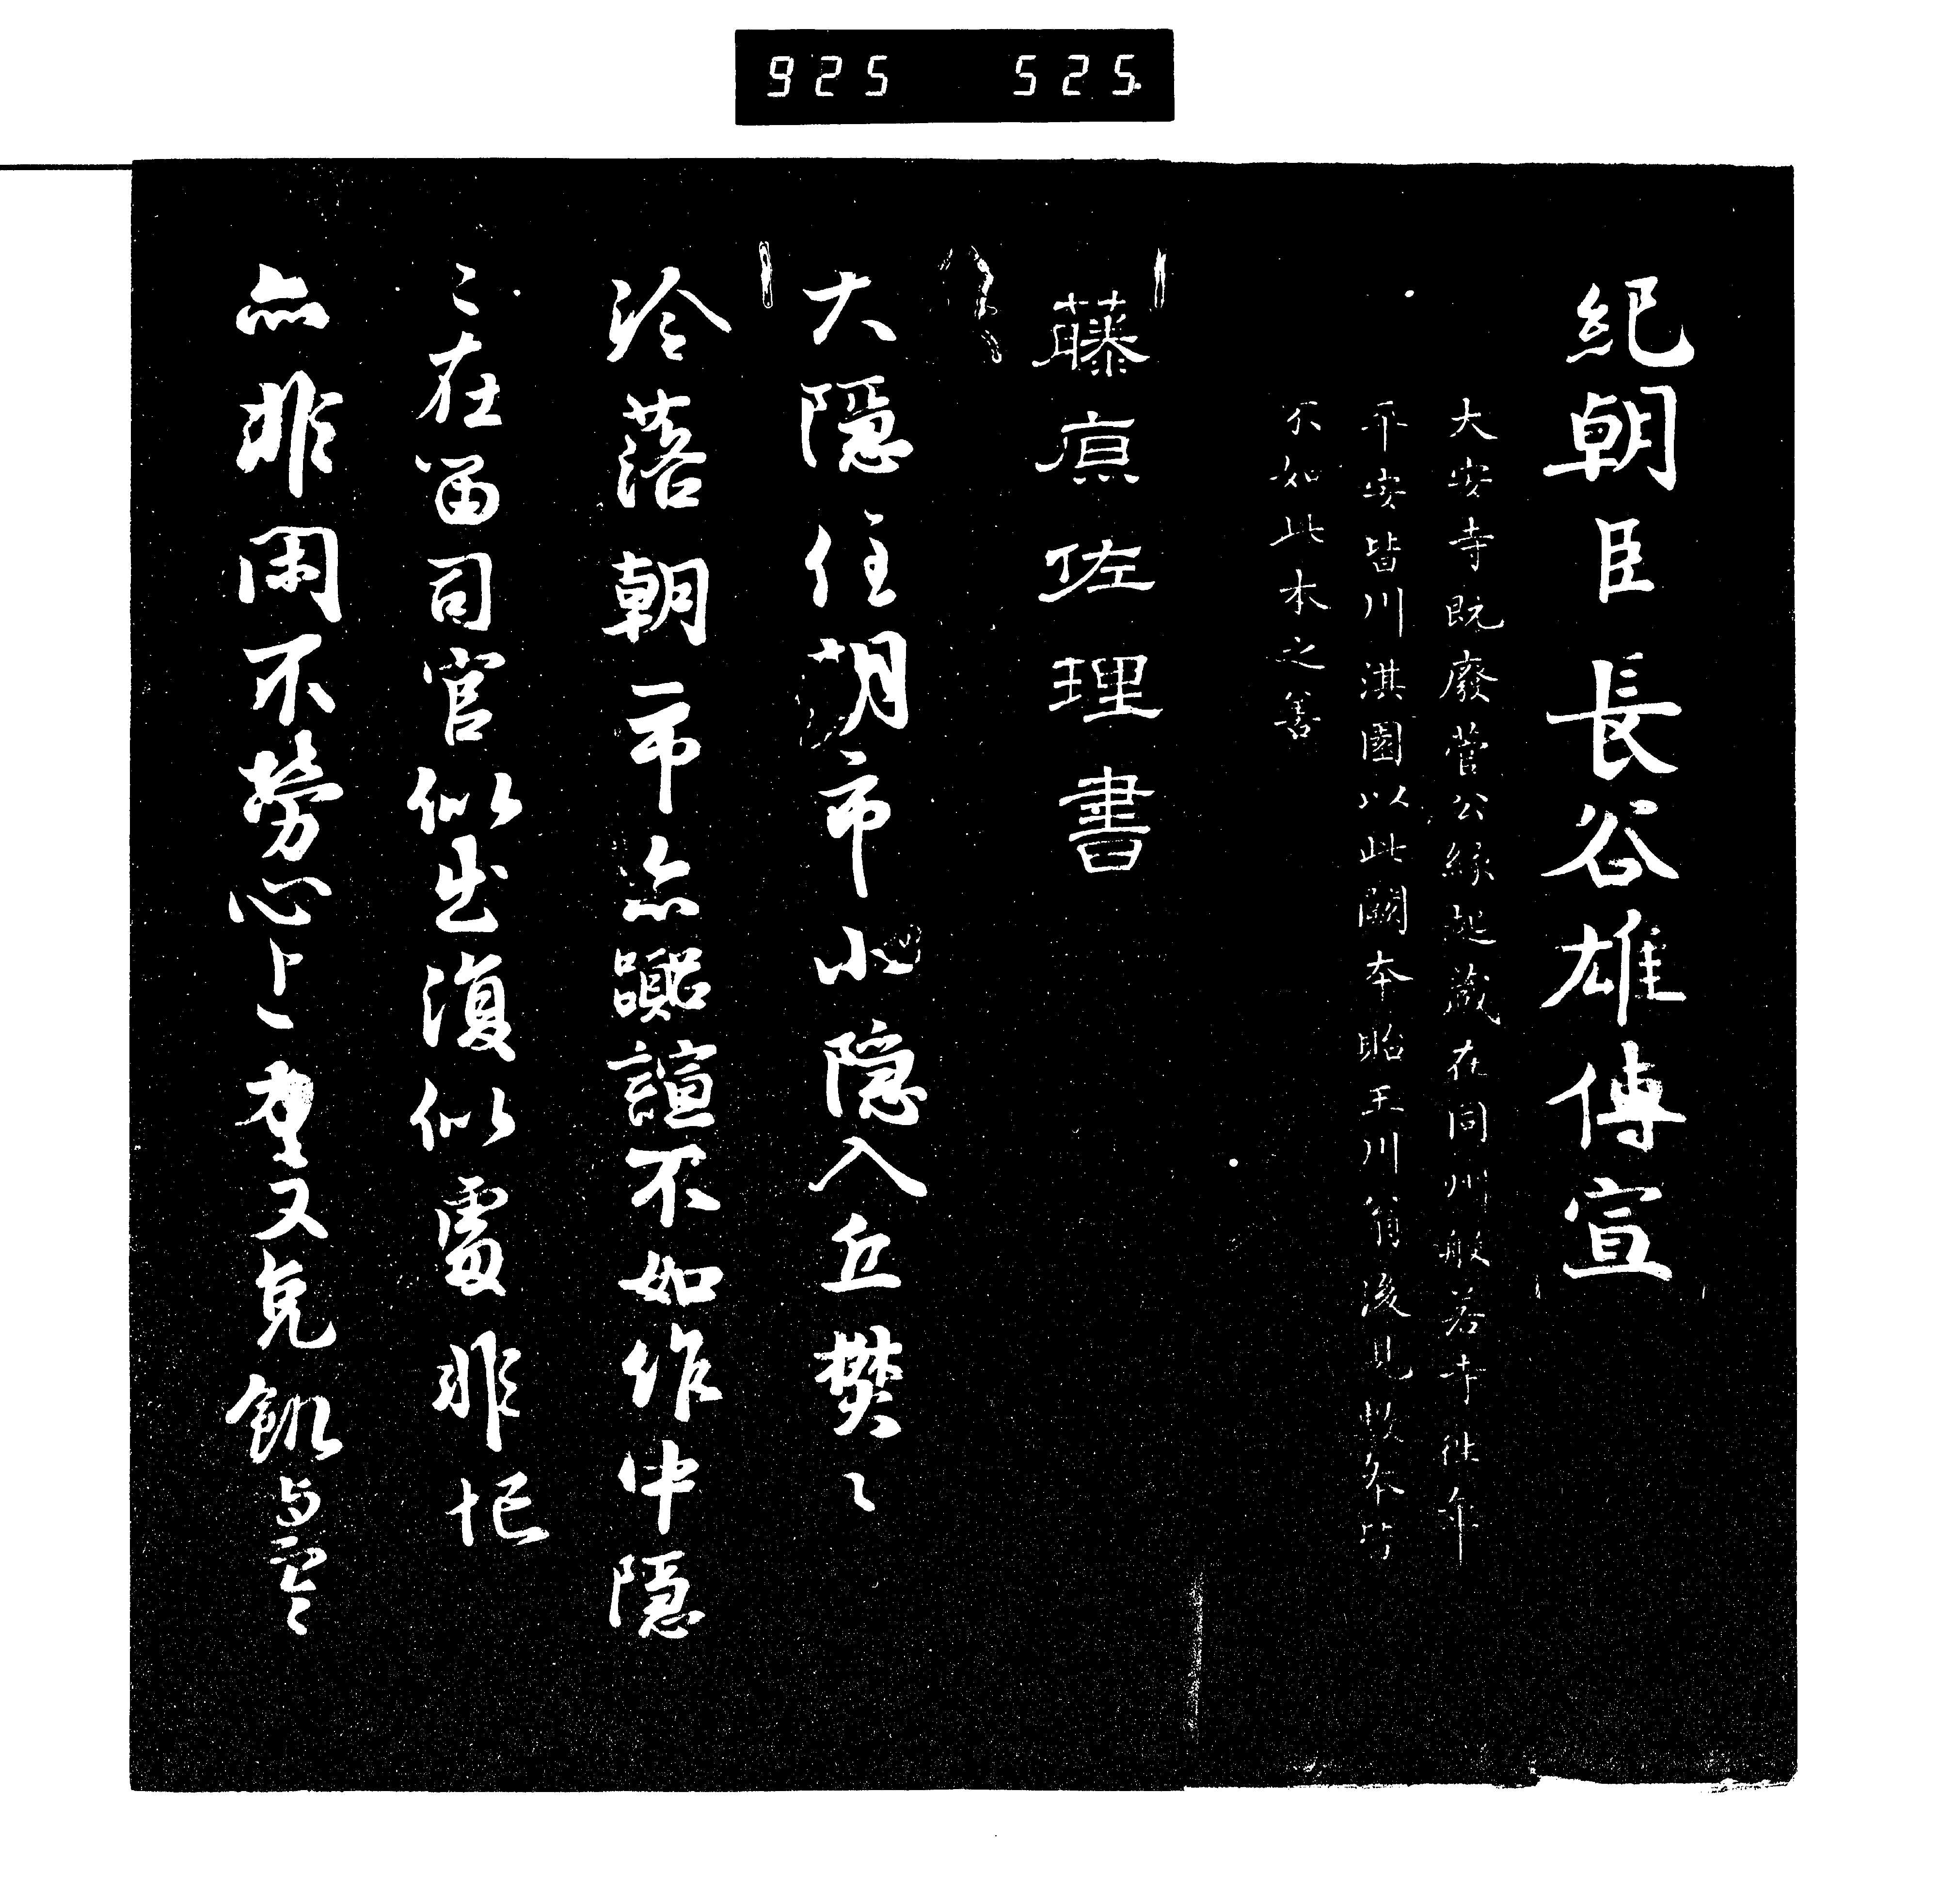 925 525
紀朝臣長谷雄傳宣
大安寺既廢菅公緣起藏在同州般若寺往年
平安皆川淇園以此闕本貽玉川翁後見數本皆
不如此本之善
藤原佐理書
大隱住朝市小隱入丘樊〻
冷落朝市亦囂諠不如作中隱
〻在留司官似出復似處非忙
亦非閑不勞心与力又免飢与寒